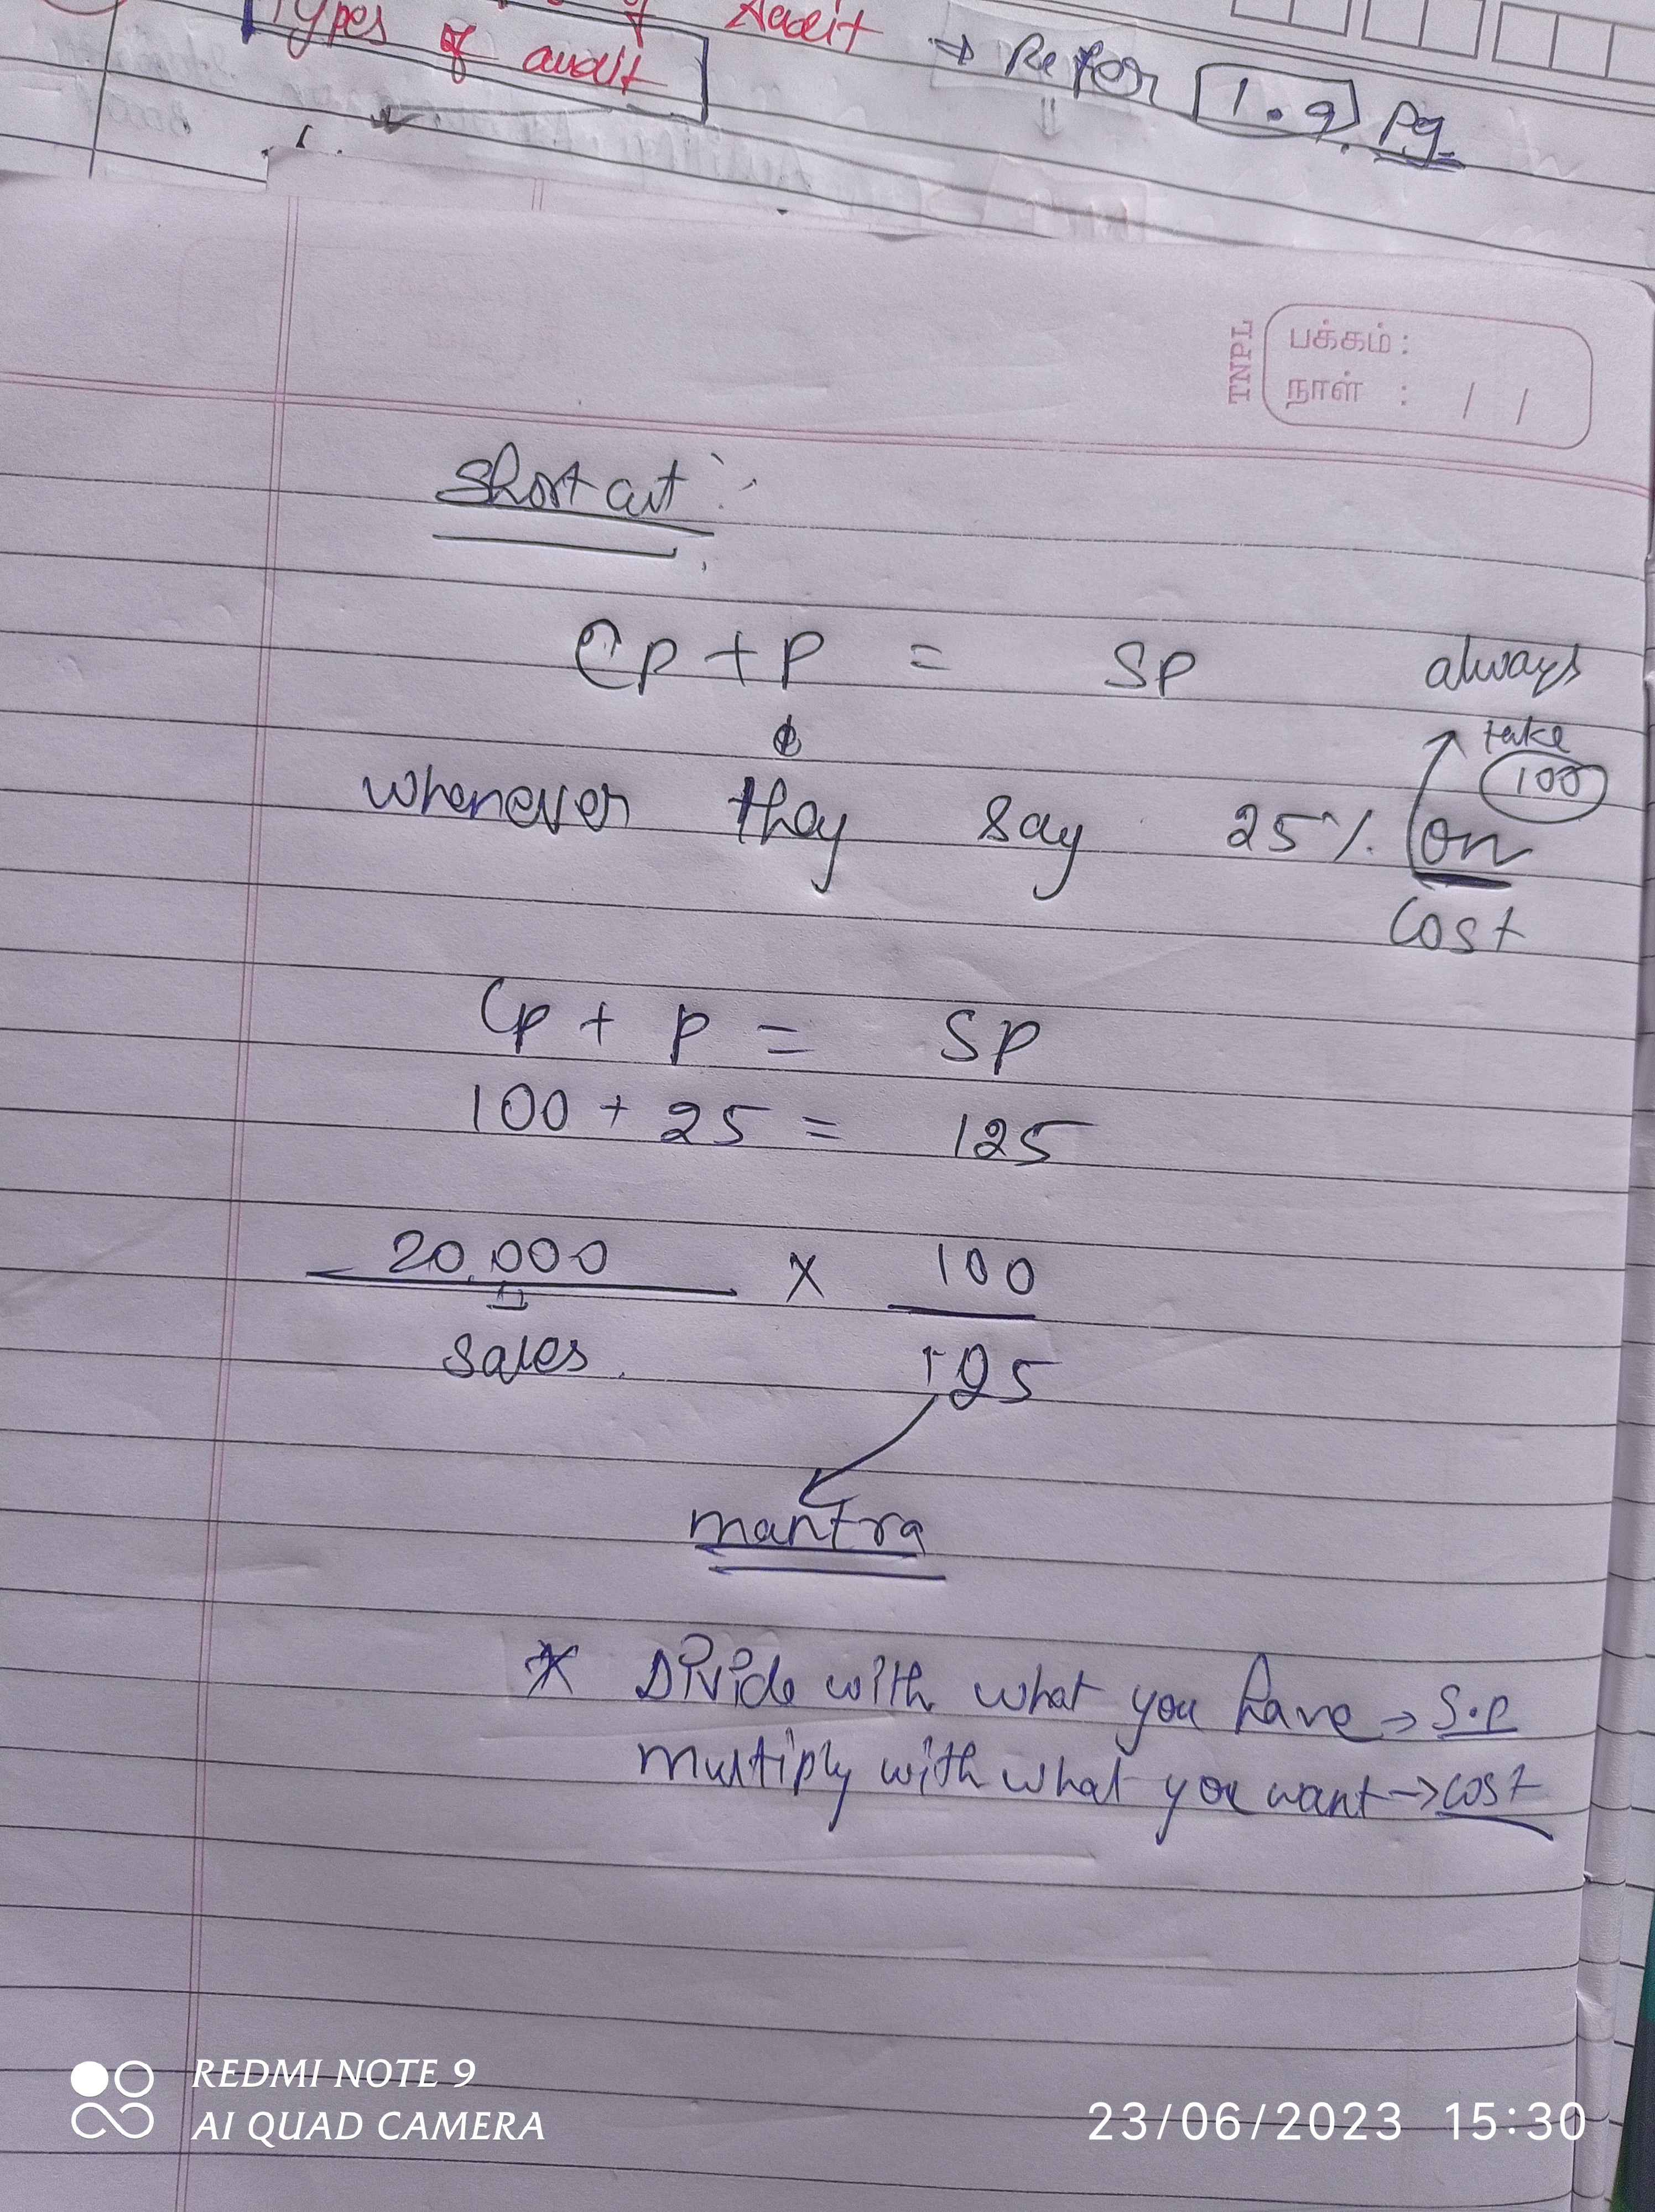 Types of audit
of Audit → Refer 1.9 Pg.
TNPL
பக்கம் :
நாள் : / /
Short cut :
Cp + P = SP
always
take
100
whenever they say 25% on
Cost
Cp + P = SP
100 + 25 = 125
20,000 × 100
Sales. 125
mantra
* Divide with what you have → S.P
multiply with what you want → cost
REDMI NOTE 9
AI QUAD CAMERA
23/06/2023 15:30